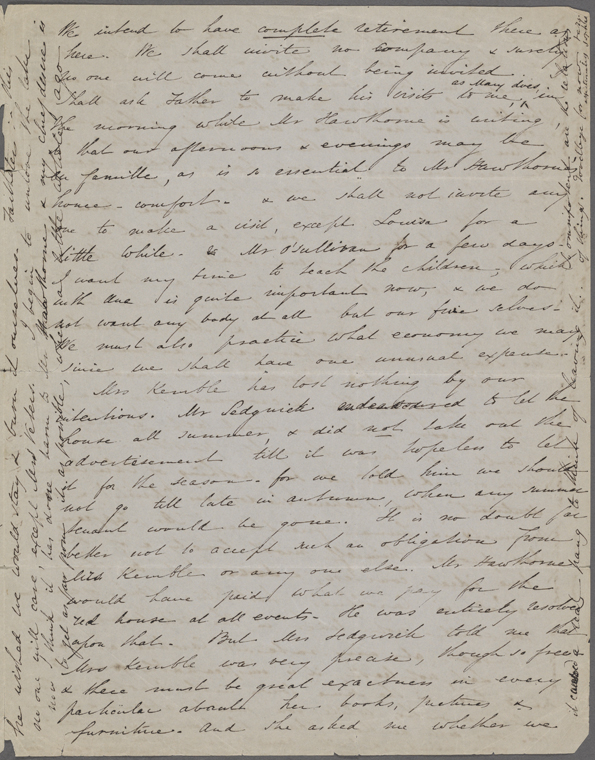 We intend to have complete retirement there as
here. We shall invite no company & surely
no one will come without being invited.
Shall ask Father to make his visits to me, as Mary does, in
the morning while Mr Hawthorne is writing,
that our afternoons & evenings may be
en famille, as is so essential to Mr Hawthorne's
home-comfort. & we shall not invite any
one to make a visit, except Louisa for a
little while. & Mr O'Sullivan for a few days.
I want my time to teach the children, which
with Una is quite important now, & we do
not want any body at all but our five selves.
We must also practice what economy we may
since we shall have one unusual expense.
Mrs Kemble has lost nothing by our
intentions. Mr Sedgwick endeavoured to let the
house all summer, & did not take out the
advertisement till it was hopeless to let
it for the season. for we told him we should
not go till late in autumn, when any summer
tenant would be gone. It is no doubt far
better not to accept such an obligation from
Kemble or any one else. Mr Hawthorne
would have paid what we pay for the
red house at all events. He was entirely resolved
upon that. But Mrs Sedgwick told me that
Mrs Kemble was very precise, though so free
& there must be great exactness in every
particular about her books, pictures &
furniture. And she asked me whether we
He wished we would stay &
ourselves.
no one will care, except Mrs Peters. I begin to
think it has done harm to Mr Hawthorne
to get as far from it as possible,
to think of leaving it.